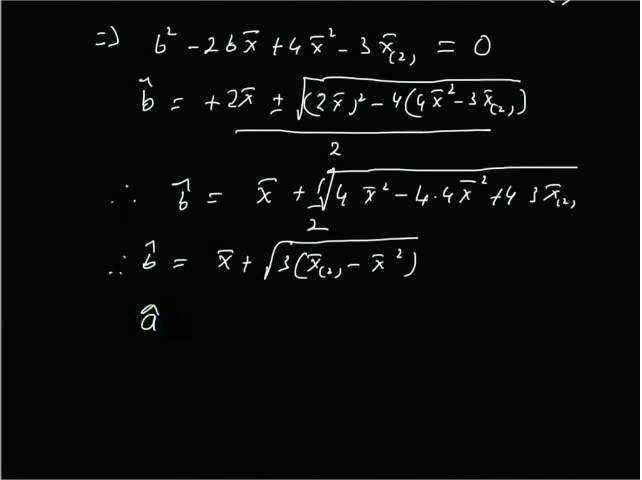 ⇒) b² - 2bx̄ + 4x̄² - 3x̄₍₂₎ = 0
b̂ = +2x̄ ± √((2x̄)² - 4(4x̄² - 3x̄₍₂₎)) / 2
∴ b̂ = x̄ + 1/2 √(4x̄² - 4·4x̄² + 4 3x̄₍₂₎)
∴ b̂ = x̄ + √(3(x̄₍₂₎ - x̄²))
â